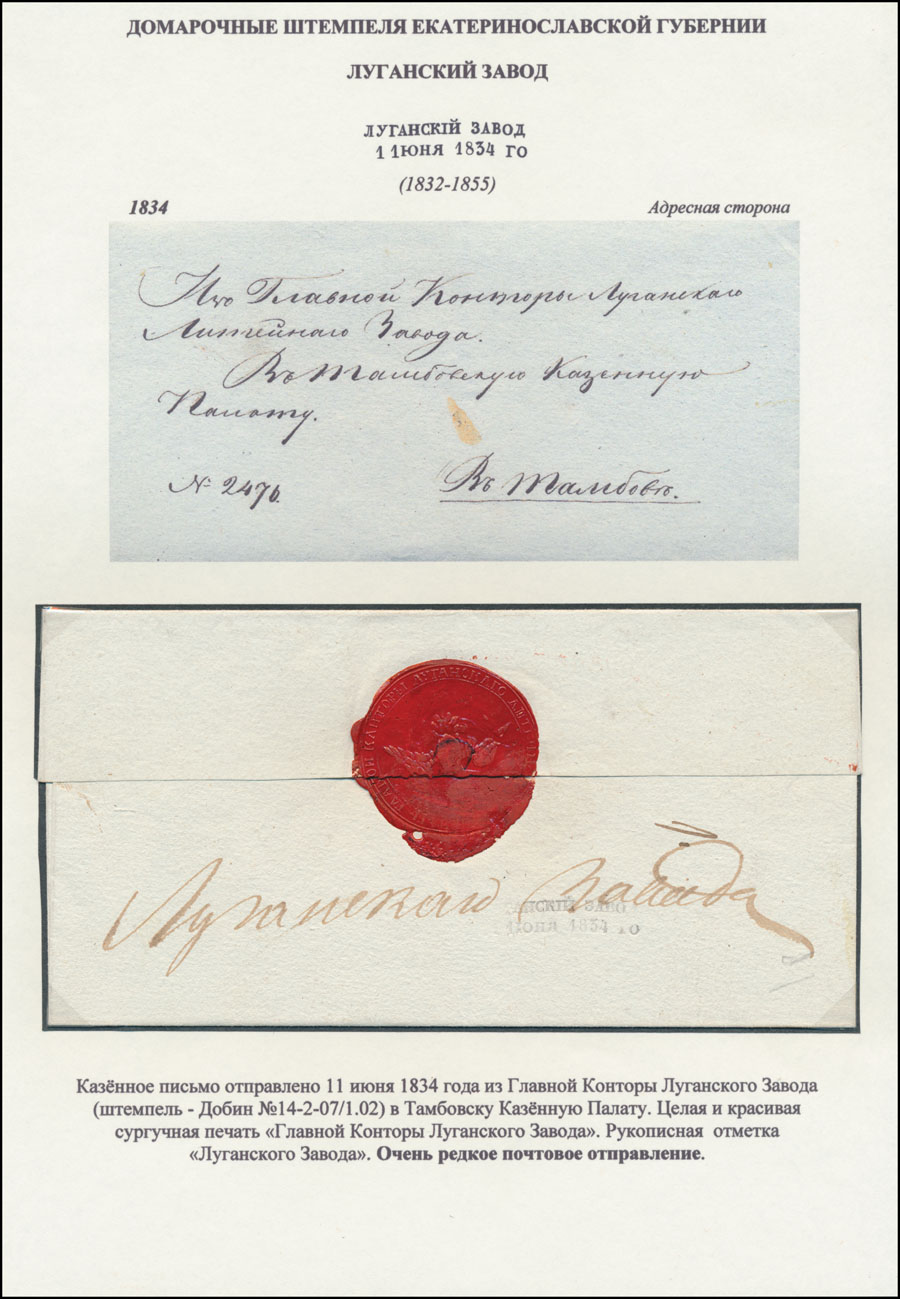 ДОМАРОЧНЫЕ ШТЕМПЕЛЯ ЕКАТЕРИНОСЛАВСКОЙ ГУБЕРНИИ
ЛУГАНСКИЙ ЗАВОД
ЛУГАНСКІЙ ЗАВОД
1 1ЮНЯ 1834 ГО
(1832-1855)
1834
Адресная сторона
Изъ Главной Конторы Луганскаго
Литейнаго Завода.
Въ Тамбовскую Казенную
Палату.
№ 2476.
Въ Тамбовъ.
КОНТОРЫ ЛУГАНСКАГО
Луганскаго Завода
АНСКІЙ ЗАВО
1ЮНЯ 1834 ГО
Казённое письмо отправлено 11 июня 1834 года из Главной Конторы Луганского Завода
(штемпель - Добин №14-2-07/1.02) в Тамбовску Казённую Палату. Целая и красивая
сургучная печать «Главной Конторы Луганского Завода». Рукописная отметка
«Луганского Завода». Очень редкое почтовое отправление.